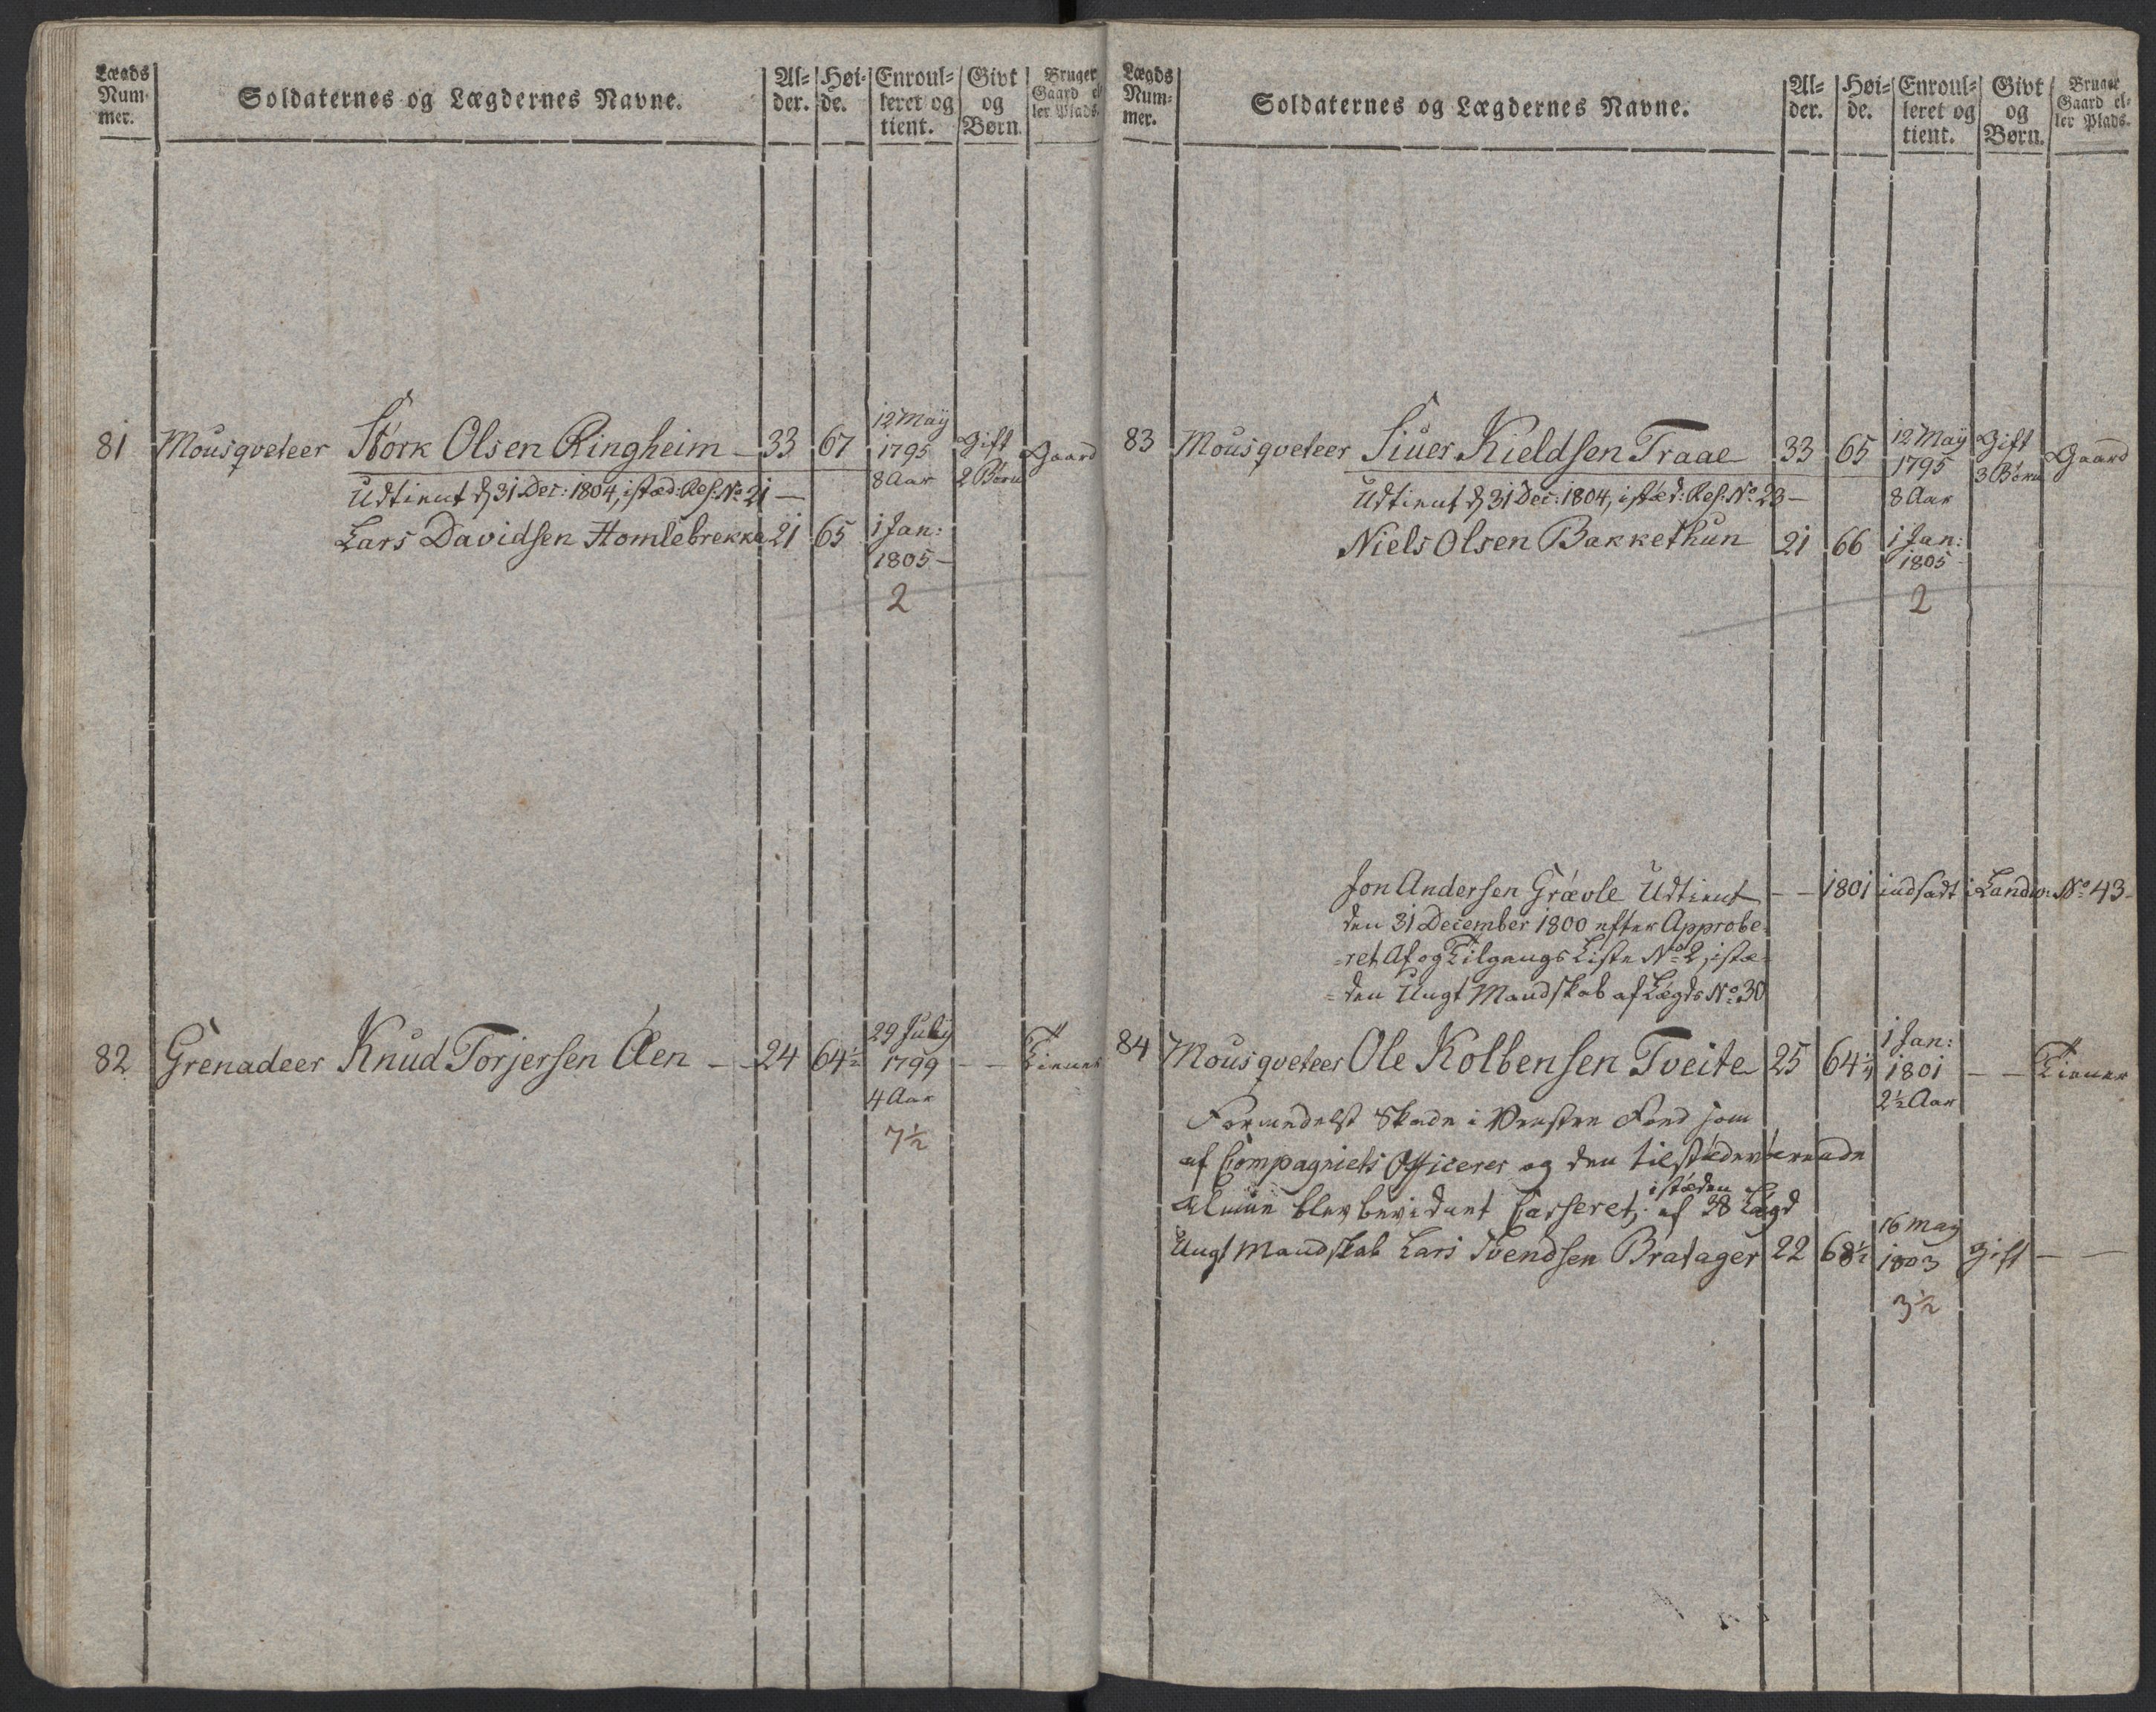 Lægds Num- mer. Soldaternes og Lægdernes Navne. Al- der. Høi- de. Enroul- leret og tient. Givt og Børn. Bruger Gaard el- ler Plads.
81 Mousqveteer Størk Olsen Ringheim — 33 67 12 May 1795 8 Aar Gift 2 Børn Gaard
Udtient d 31 Dec: 1804, istæd: Res: No 21 —
Lars Davidsen Homlebrekke 21 65 1 Jan: 1805 —
2
82 Grenadeer Knud Torjersen Øen - - 24 64½ 29 July 1799 4 Aar - - Tiener
7½
Lægds Num- mer. Soldaternes og Lægdernes Navne. Al- der. Høi- de. Enroul- leret og tient. Givt og Børn. Bruger Gaard el- ler Plads.
83 Mousqveteer Siuer Kieldsen Traae 33 65 12 May 1795 8 Aar Gift 3 Børn Gaard
Udtient d 31 Dec: 1804, istæd: Res: No 23 —
Niels Olsen Bakkethun 21 66 1 Jan: 1805 -
2
Jon Andersen Grævle Udtient - - 1801 indsadt i Landv: No 43 -
den 31 December 1800 efter Approbe-
-ret Af og Tilgangs Liste No 2, istæ-
-den Ungt Mandskab af Lægds No 30
84 Mousqveteer Ole Kolbensen Tveite 25 64¼ 1 Jan: 1801 2½ Aar - - Tiener
Formedelst Skade i Venstre Foed som
af Compagniets Officerer og den tilstædeværende
Almue blev bevidnet Casseret, istæden af 38 Lægd
Ungt Mandskab Lars Svendsen Bratager 22 68½ 16 May 1803 Gift — —
3½